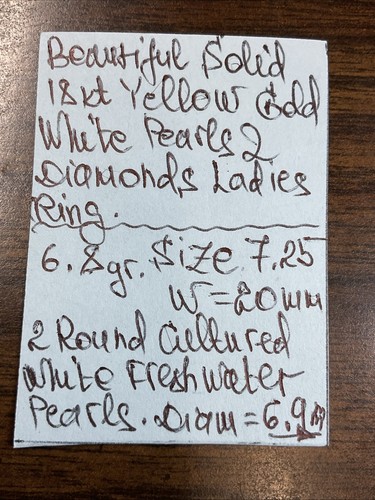 Beautiful Solid
18kt Yellow Gold
White Pearls 2
Diamonds Ladies
Ring.
6.8gr. Size 7.25
W=20mm
2 Round Cultured
White Freshwater
Pearls. Diam=6.9m